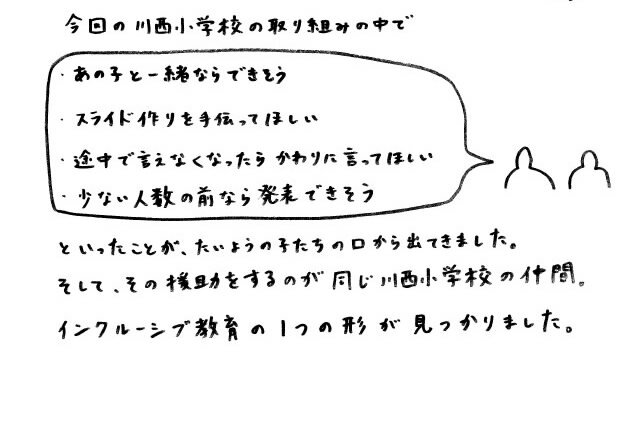 今回の川西小学校の取り組みの中で
・あの子と一緒ならできそう
・スライド作りを手伝ってほしい
・途中で言えなくなったらかわりに言ってほしい
・少ない人数の前なら発表できそう
といったことが、たいようの子たちの口から出てきました。
そして、その援助をするのが同じ川西小学校の仲間。
インクルーシブ教育の1つの形が見つかりました。